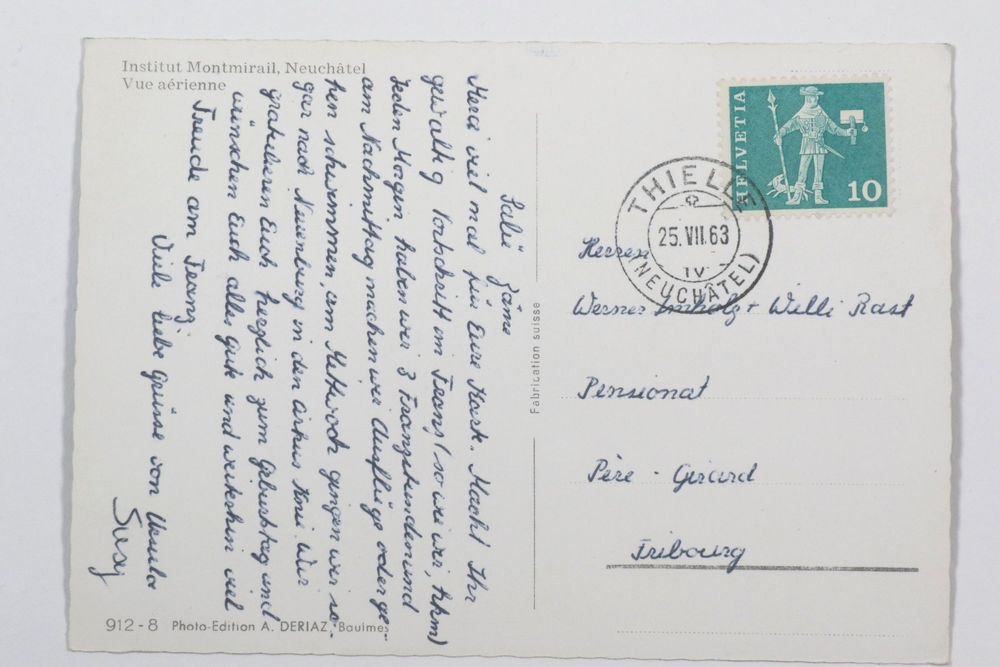 Institut Montmirail, Neuchâtel
Vue aérienne
Salü zäme
Merci viel mal für Eure Kart. Macht Ihr
gewaltig Fortschritt im Franz (so wie wir, hkm)
Jeden Morgen haben wir 3 Franzstunden und
am Nachmittag machen wir Ausflüge oder ge-
hen schwimmen, am Mittwoch gingen wir so-
gar nach Neuenburg in den Zirkus Knie. Wir
gratulieren Euch herzlich zum Geburtstag und
wünschen Euch alles Gute und weiterhin viel
Freude am Franz.
Viele liebe Grüsse von Ursula
Susy
912 - 8 Photo-Edition A. DERIAZ, Baulmes
Fabrication suisse
HELVETIA
10
THIELLE
25. VII. 63
IV
(NEUCHÂTEL)
Herren
Werner Imholz + Willi Rast
Pensionat
Père - Girard
Fribourg